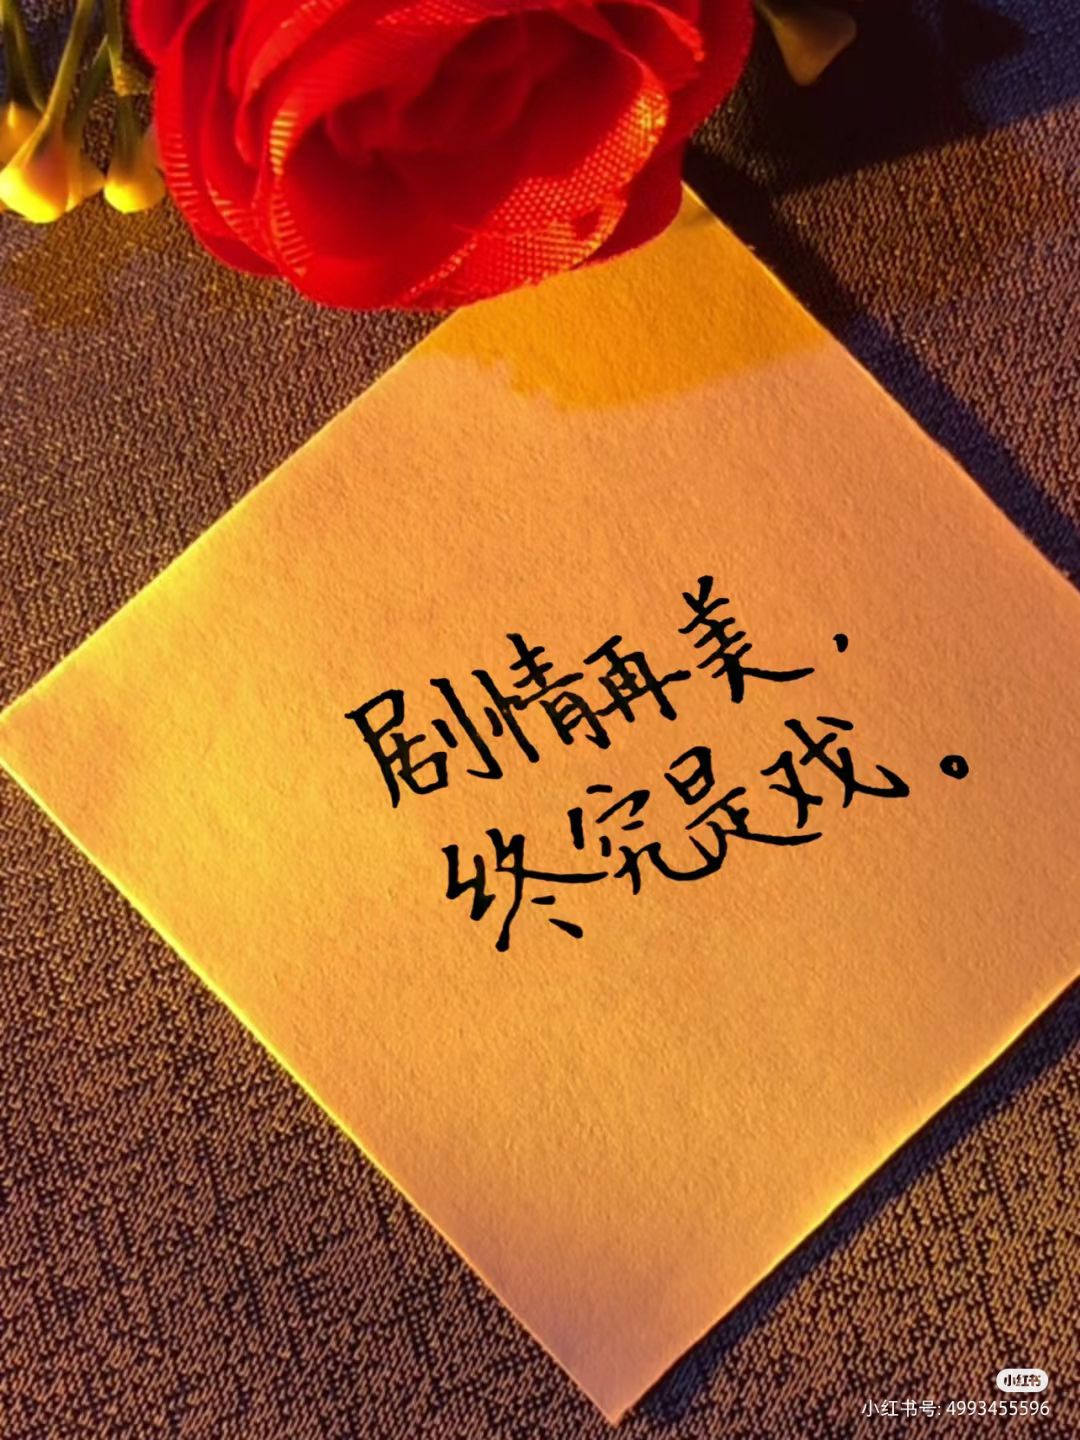 剧情再美，
终究是戏。
小红书
小红书号: 4993455596